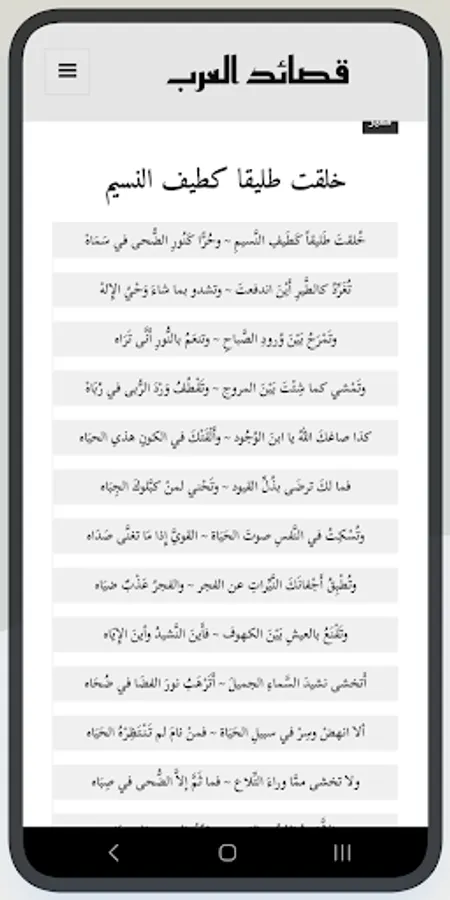 قصائد العرب
خلقت طليقا كطيف النسيم
خُلقتَ طَليقاً كَطَيفِ النَّسيمِ ~ وحُرًّا كَنُورِ الضُّحى في سَمَاهْ
تُغَرِّدُ كالطَّيرِ أَيْنَ اندفعتَ ~ وتشدو بما شاءَ وَحْيُ الإِلهْ
وتَمْرَحُ بَيْنَ وُرودِ الصَّباحِ ~ وتنعَمُ بالنُّورِ أنَّى تَرَاه
وتَمْشي كما شِئْتَ بَيْنَ المروجِ ~ وتَقْطُفُ وَرْدَ الرُّبى في رُبَاهْ
كذا صاغكَ اللهُ يا ابنَ الوُجُودِ ~ وأَلْقَتْكَ في الكونِ هذي الحيَاه
فما لكَ ترضَى بذُلِّ القيود ~ وتَحْني لمنْ كبَّلوكَ الجِبَاه
وتُسْكِتُ في النَّفسِ صوتَ الحَيَاة ~ القويَّ إذا مَا تغنَّى صَدَاه
وتُطْبِقُ أَجْفانَكَ النَّيِّراتِ عن الفجر ~ والفجرُ عَذْبٌ ضيَاه
وتَقْنَعُ بالعيشِ بَيْنَ الكهوف ~ فأَينَ النَّشيدُ وأَينَ الإيَاه
أَتخشى نشيدَ السَّماءِ الجميلَ ~ أَتَرْهَبُ نورَ الفضَا في ضُحَاه
ألا انهضْ وسِرْ في سبيلِ الحَيَاة ~ فمنْ نامَ لم تَنْتَظِرْهُ الحَيَاه
ولا تخشى ممَّا وراءَ التِّلاع ~ فما ثَمَّ إلاَّ الضُّحى في صِبَاه